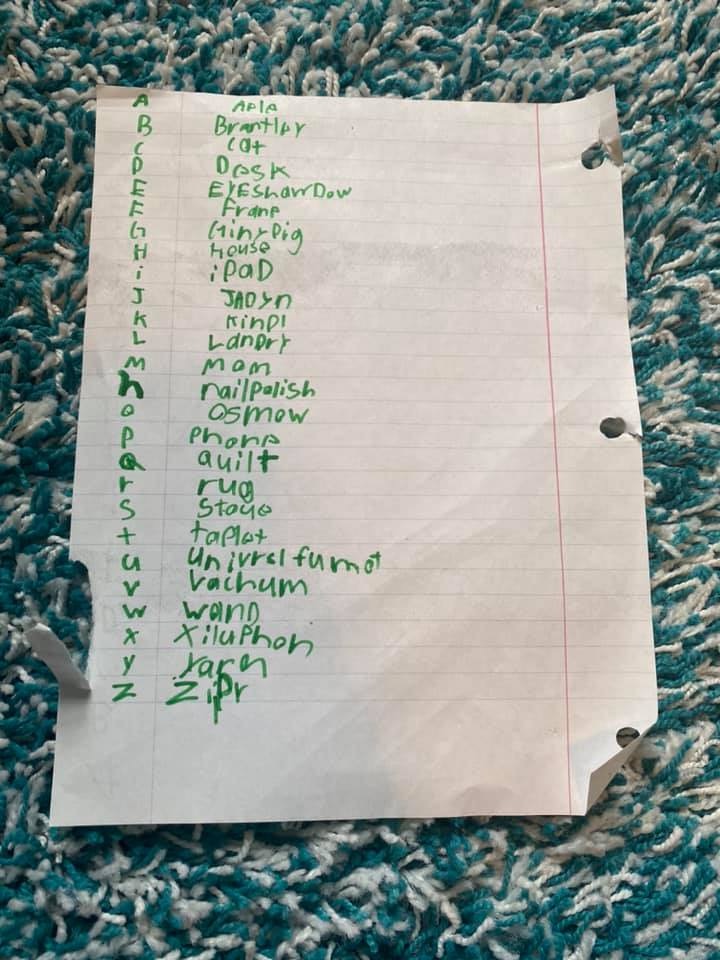 A Aple
B Brantley
C cat
D Desk
E EyEshawDow
F Frame
G Ginypig
H House
i iPaD
J JADyn
K Kindl
L LanDry
M Mom
n nailpolish
o osmow
p Phone
Q quilt
r rug
S Stove
t taplet
u univrel fumot
v vachum
w wanD
x xiluphon
y yarn
Z Zipr